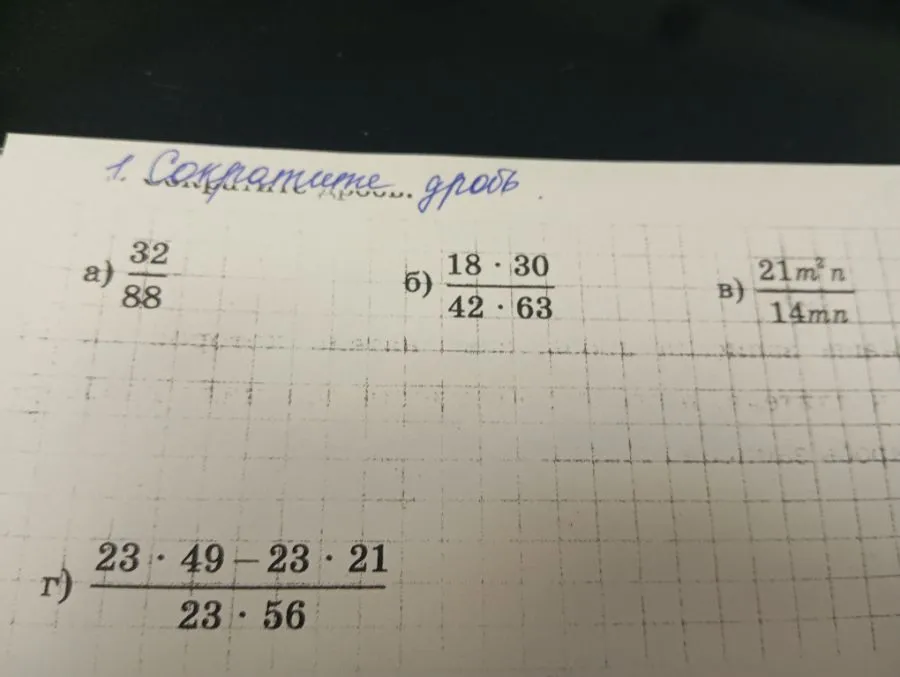 1. Сократите дробь.
а) 32/88 б) 18 · 30/42 · 63 в) 21m²n/14mn
г) 23 · 49 – 23 · 21/23 · 56